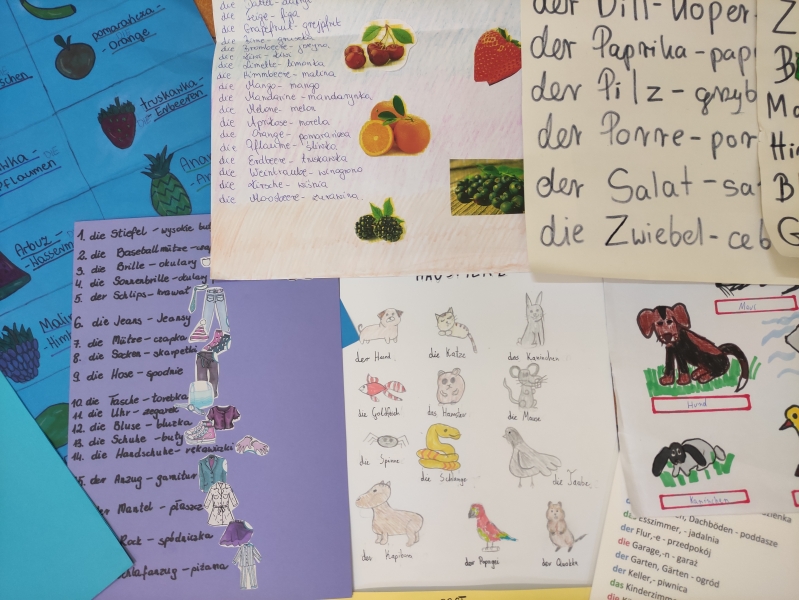 pomarańcza-
- Orange
truskawka-
- Erdbeeren
Pflaumen
Arbuz-
die
die Feige - figa
die Grapefruit - grejpfrut
die
die
die
die Limette - limonka
die Himmbeere - malina
die Mango - mango
die Mandarine - mandarynka
die Melone - melon
die Aprikose - morela
die Orange - pomarańcza
die Pflaume - śliwka
die Erdbeere - truskawka
die Weintraube - winogrono
die Kirsche - wiśnia
die Moosbeere - żurawina
der Dill - koper
der Paprika - pap
der Pilz - grzyb
der Porre - por
der Salat - sa
die Zwiebel - ceb
Z
B
Hi
B
G
1. die Stiefel - wysokie but
2. die Baseballmütze -
3. die Brille - okulary
4. die Sonnenbrille - okulary
5. der Schlips - krawat
6. die Jeans - Jeansy
7. die Mütze - czapka
8. die Socken - skarpetki
9. die Hose - spodnie
10. die Tasche - torebka
11. die Uhr - zegarek
12. die Bluse - bluzka
13. die Schuhe - buty
14. die Handschuhe - rękawiczki
5. der Anzug - garnitur
der Mantel - płaszcz
Rock - spódniczka
chlafanzug - piżama
HAUSTIERE
der Hund
die Katze
das Kaninchen
die Goldfisch
das Hamster
die Mause
die Spinne
die Schlange
die Taube
der Papagei
Maus
Hund
Kaninchen
, Dachböden - poddasze
Esszimmer,- jadalnia
der Flur,-e - przedpokój
die Garage,-n - garaż
der Garten, Gärten - ogród
der Keller,- piwnica
das Kinderzimmer